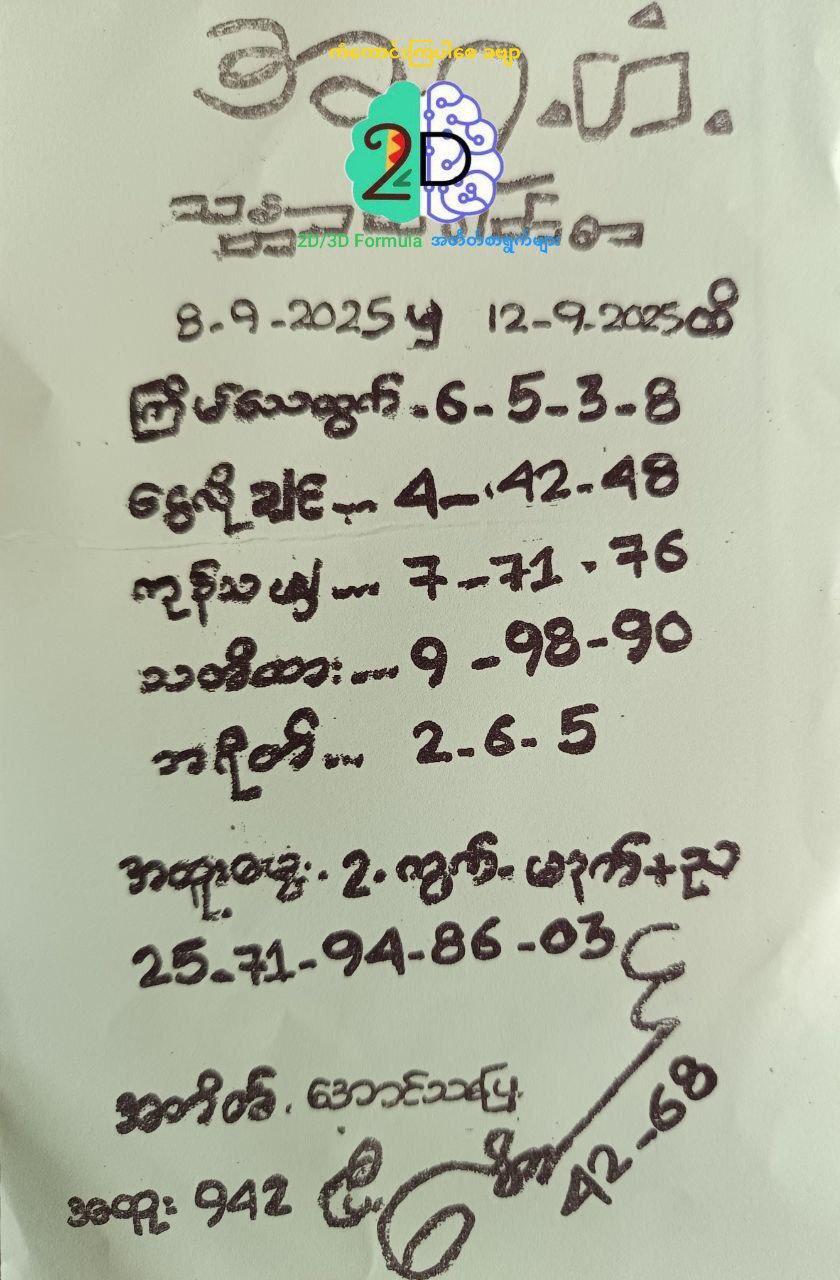 ကံကောင်းကြပါစေ ခဗျာ
2D
2D/3D Formula အတိတ်စာရွက်များ
8-9-2025 မှ 12-9-2025 ထိ
ကြိမ်သေထွက် - 6 - 5 - 3 - 8
ငွေလိုချင် .... 4 - 42 - 48
ကုန်သည် .... 7 - 71 - 76
သတိထား .... 9 - 98 - 90
အရိုတ် ... 2 - 6 - 5
အထူးမွေး - 2 - ကွက် - မနက် + ည
25 - 71 - 94 - 86 - 03
အတိတ်. အောင်သပြေ
အထူး 942 ပြီး
42 - 68